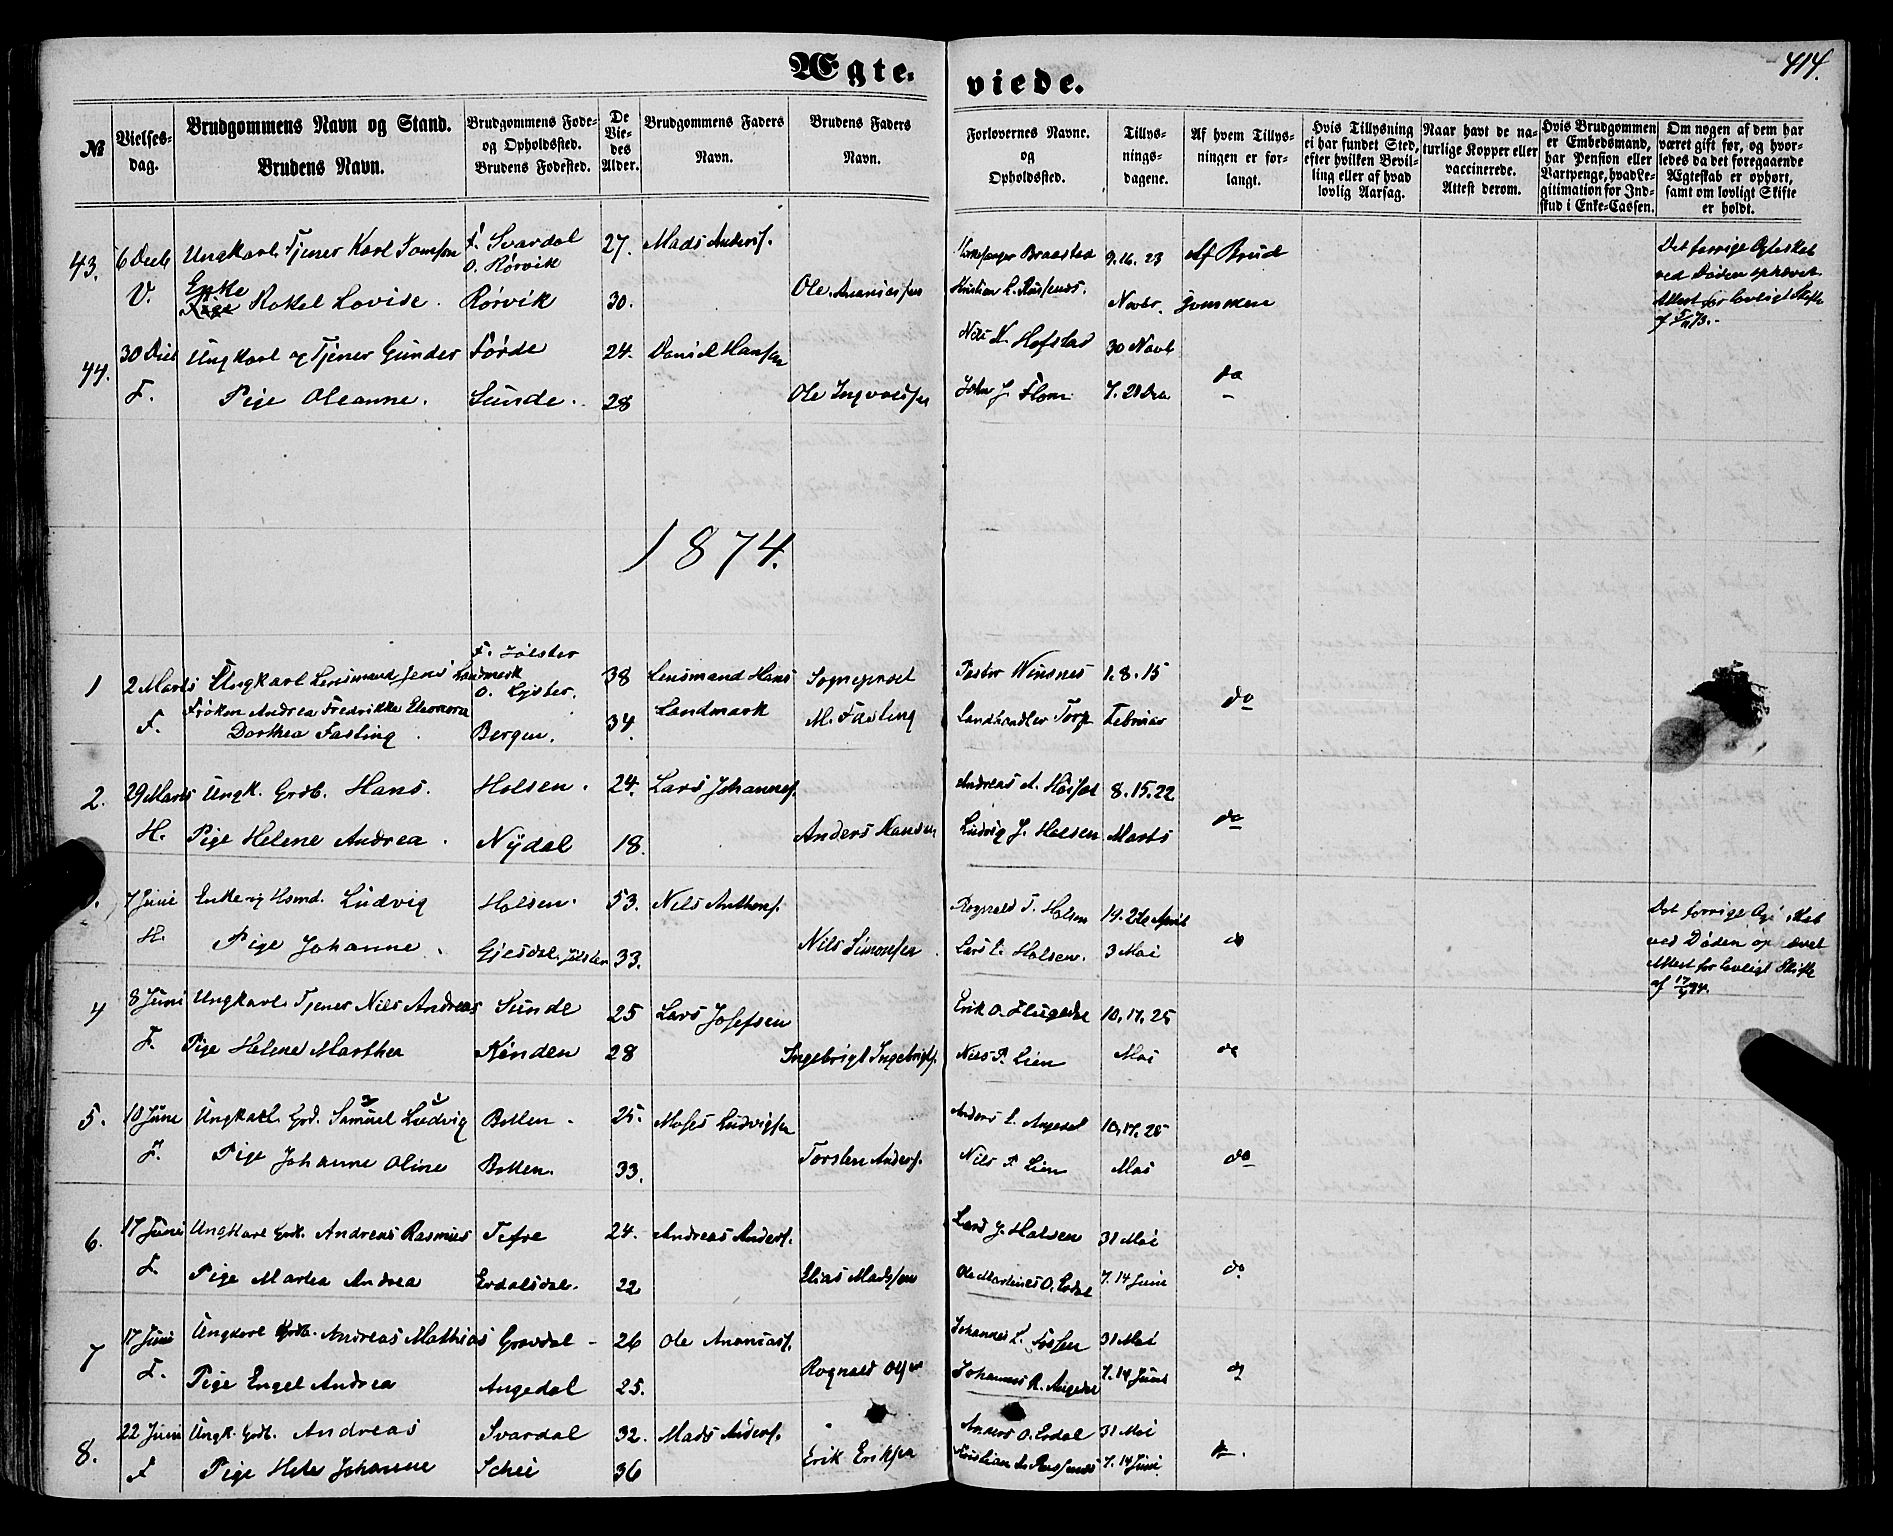 414.
Ægte- viede.
№
Vielses-
dag.
Brudgommens Navn og Stand.
Brudens Navn.
Brudgommens Føde-
og Opholdssted.
Brudens Fødested.
De
Vie-
des
Alder.
Brudgommens Faders
Navn.
Brudens Faders
Navn.
Forlovernes Navne.
og
Opholdssted.
Tillys-
nings-
dagene.
Af hvem Tillys-
ningen er for-
langt.
Hvis Tillysning
ei har fundet Sted,
efter hvilken Bevil-
ling eller af hvad
lovlig Aarsag.
Naar havt de na-
turlige Kopper eller
vaccinerede.
Attest derom.
Hvis Brudgommen
er Embedsmand,
har Pension eller
Vartpenge, hvad Le-
gitimation for Ind-
skud i Enke-Cassen.
Om nogen af dem har
været gift før, og hvor-
ledes da det foregaaende
Ægteskab er ophørt,
samt om lovligt Skifte
er holdt.
43. 6 Decb Ungkarl Tjener Karl F. Svardal 27. Mads Anders. Kirkesanger Braasted 9. 16. 23 Af Brud
O. Rørvik
V. Enke Rakel Lovise. Rørvik 30. Ole Ananiassen Kristian Novbr. gommen
Det forrige Egteskab
ved Døden ophævet
Attest for lovligt Skifte
44. 30 Dec Ungkarl og Tjener Gunder Förde 24. Daniel Hansen Nils N. Hofstad 30 Novb
F. Pige Oleanne. Sunde. 28 Ole Ingvaldsen John J. Flom 7. 21 Dec do
1874.
F. Jölster
1 2 Marts Ungkarl Lensmand Jens Landmark O. Lyster. 38 Lensmand Hans Sogneprest Pastor 1. 8. 15
F. Frøken Andrea Fredrikke Eleonora Landmark M. Fasting Landhandler Torp Februar do
Dorthea Fasting. Bergen. 34.
2. 29 Marts Ungk. Grdb. Hans. Holsen. 24. Lars Johannes. Andreas A. 8. 15. 22
H. Pige Helene Andrea. Nÿdal 18. Anders Hansen Ludvig J. Holsen Marts do
7 Juni Enkem Ludvig Holsen. 53. Nils Anthons. Rognald T. Holsen 19. 26 April
H. Pige Johanne. Gjesdal Jölster 33. Nils Simonsen Lars Holsen. 3 Mai do
Det forrige
ved Døden
Attest for lovligt Skifte
af 17/4 74.
4 8 Juni Ungkarl Tjener Nils Andreas Sunde 25 Lars Josefsen Erik O. 10, 17, 25
F. Pige Helene Marthea Kinden 28 Ingebrigt Ingebrigts. Nils P. Lien Mai do
2 1
5. 10 June Ungkarl Grd. Samuel Ludvig Botten. 25. Moses Ludvigsen Anders Angedal 10, 17. 25
F. Pige Johanne Oline Botten. 33. Torsten Anders. Nils P. Lien Mai do
6. 17 Juni Ungkarl Grdb. Andreas Rasmus Tefre 24. Andreas Anders. Lars J. Holsen 31 Mai
F. Pige Martea Andrea Erdalsdal. 22 Elias Madssen Ole Martinus O. Erdal 7. 14 Juni do
7 17 Juni Ungkarl Grdb. Andreas Mathias Grovdal 26 Ole Ananiass. Johannes L. 31 Mai
F. Pige Engel Andrea Angedal 25. Rognald Olsen Johannes R. Angedal 7. 14 Juni do
8. 22 Juni Ungk. Grdb. Andreas Svardal 32. Mads Anders. Anders O. Erdal 31 Mai
F Pige Johanne Schei 36 Erik Eriksen Kristian 7. 14 Juni